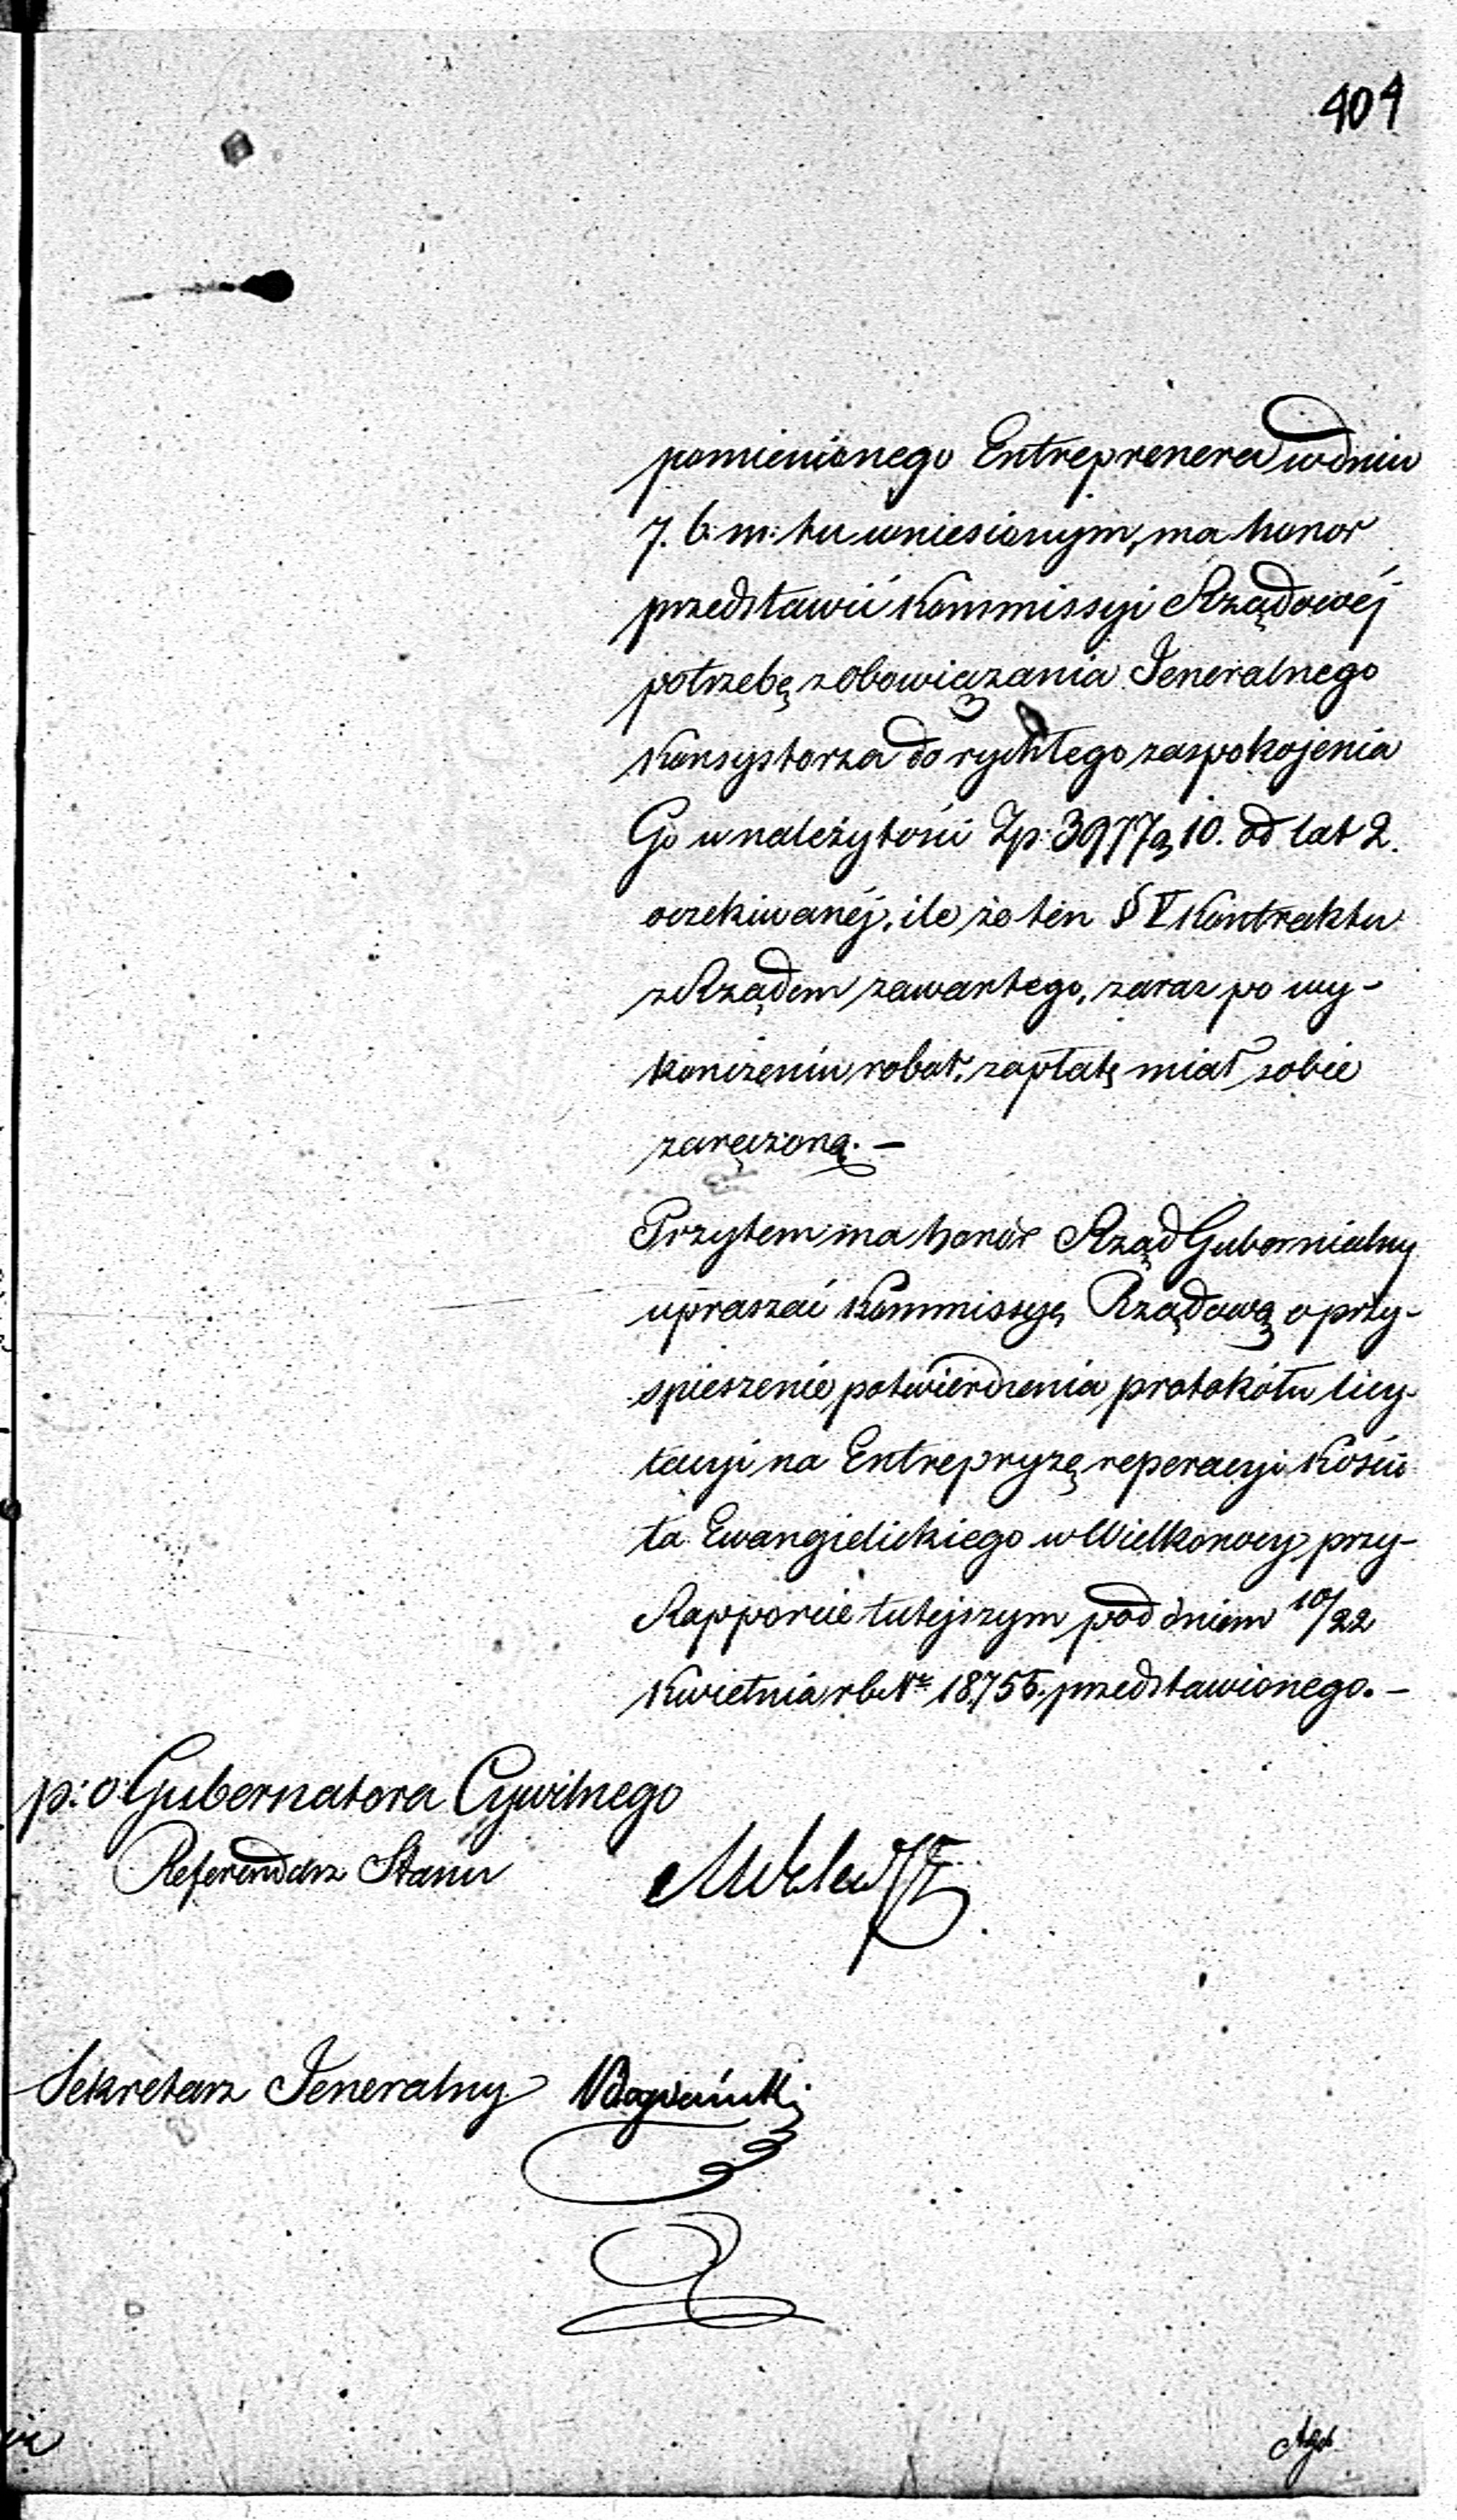 404
pomienionego Entreprenera w dniu
7. b: m: tu wniesionym, ma honor
przedstawić Kommissyi Rządowéj
potrzebę zobowiązania Jeneralnego
Konsystorza do rychłego zaspokojenia
Go w należytości Zp: 3977 g 10. od lat 2.
oczekiwanéj, ile że ten § V Kontraktu
z Rządem zawartego, zaraz po wy-
kończeniu robot, zapłatę miał sobie
zaręczoną. —
Przytem ma honor Rząd Gubernialny
upraszać Kommissyę Rządową o przy-
spieszenie potwierdzenia protokółu licy-
tacyi na Entrepryzę reperacyi Kościo
ła Ewangielickiego w Wielkonocy przy
Rapporcie tutejszym pod dniem 10/22
Kwietnia rb Nr 18,755. przedstawionego. —
p: o: Gubernatora Cywilnego
Referendarz Stanu
Sekretarz Jeneralny